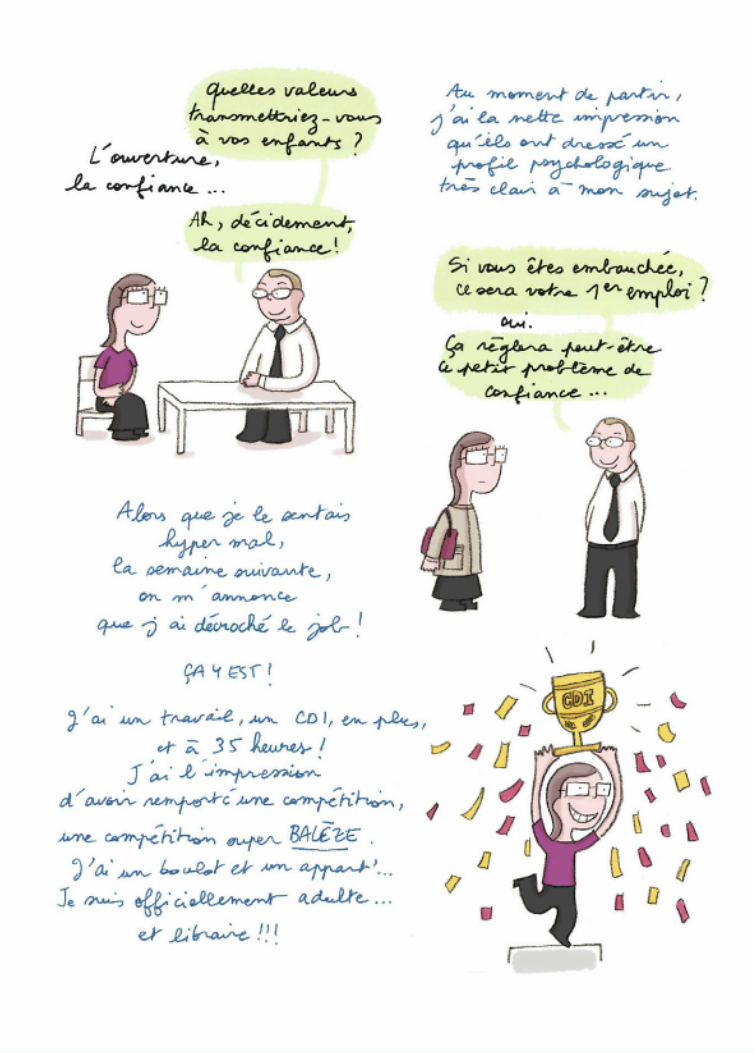 Quelles valeurs
transmettriez-vous
à vos enfants ?
L'ouverture,
la confiance...
Ah, décidément,
la confiance !
Au moment de partir,
j'ai la nette impression
qu'ils ont dressé un
profil psychologique
très clair à mon sujet.
Si vous êtes embauchée,
ce sera votre 1er emploi ?
oui.
Ça règlera peut-être
ce petit problème de
confiance...
Alors que je le sentais
hyper mal,
la semaine suivante,
on m'annonce
que j'ai décroché le job !
ÇA Y EST !
J'ai un travail, un CDI, en plus,
et à 35 heures !
J'ai l'impression
d'avoir remporté une compétition,
une compétition super BALÈZE.
J'ai un boulot et un appart'...
Je suis officiellement adulte...
et libraire !!!
CDI